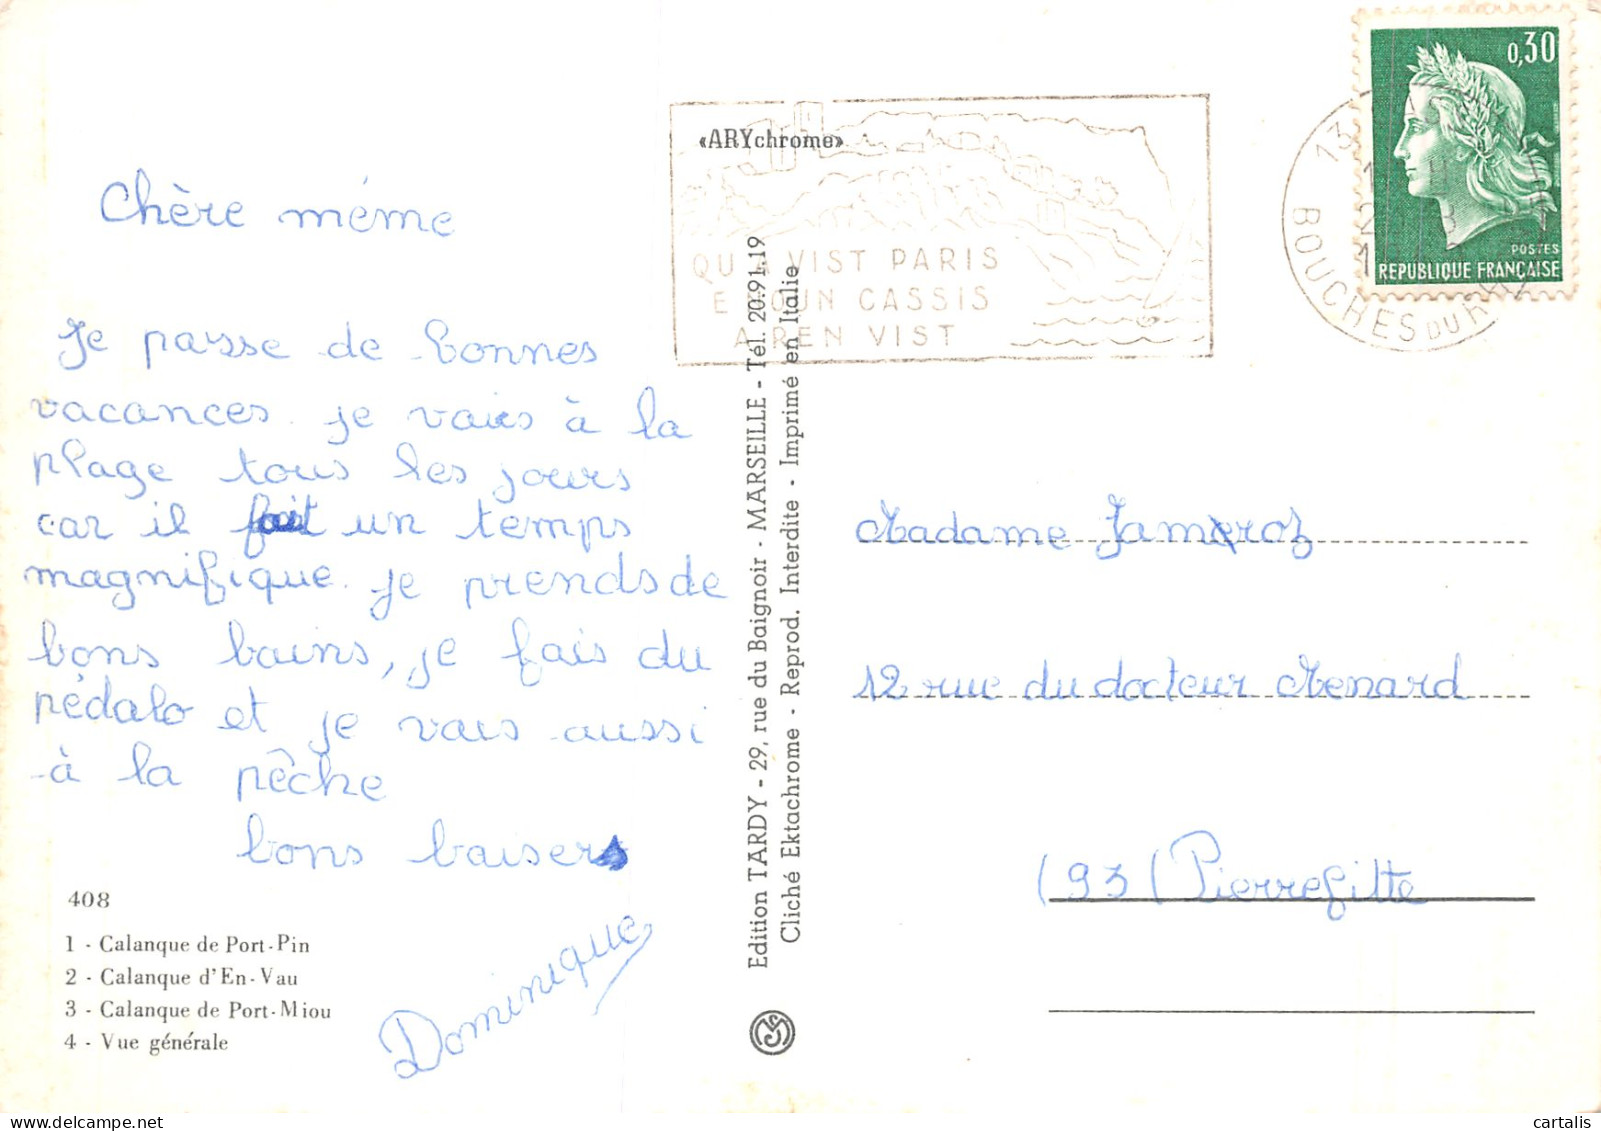 Chère mémé
Je passe de bonnes
vacances. je vais à la
plage tous les jours
car il fait un temps
magnifique. je prends de
bons bains, je fais du
pédalo et je vais aussi
à la pêche
bons baisers
Dominique
408
1 - Calanque de Port-Pin
2 - Calanque d'En-Vau
3 - Calanque de Port-Miou
4 - Vue générale
«ARYchrome»
QU A VIST PARIS
E NOUN CASSIS
A REN VIST
Edition TARDY - 29, rue du Baignoir - MARSEILLE - Tél. 20.91.19
Cliché Ektachrome - Reprod. Interdite - Imprimé en Italie
13
BOUCHES DU RHONE
0,30
POSTES
REPUBLIQUE FRANÇAISE
Madame Jamroz
12 rue du docteur Menard
(93) Pierrefitte
cartalis